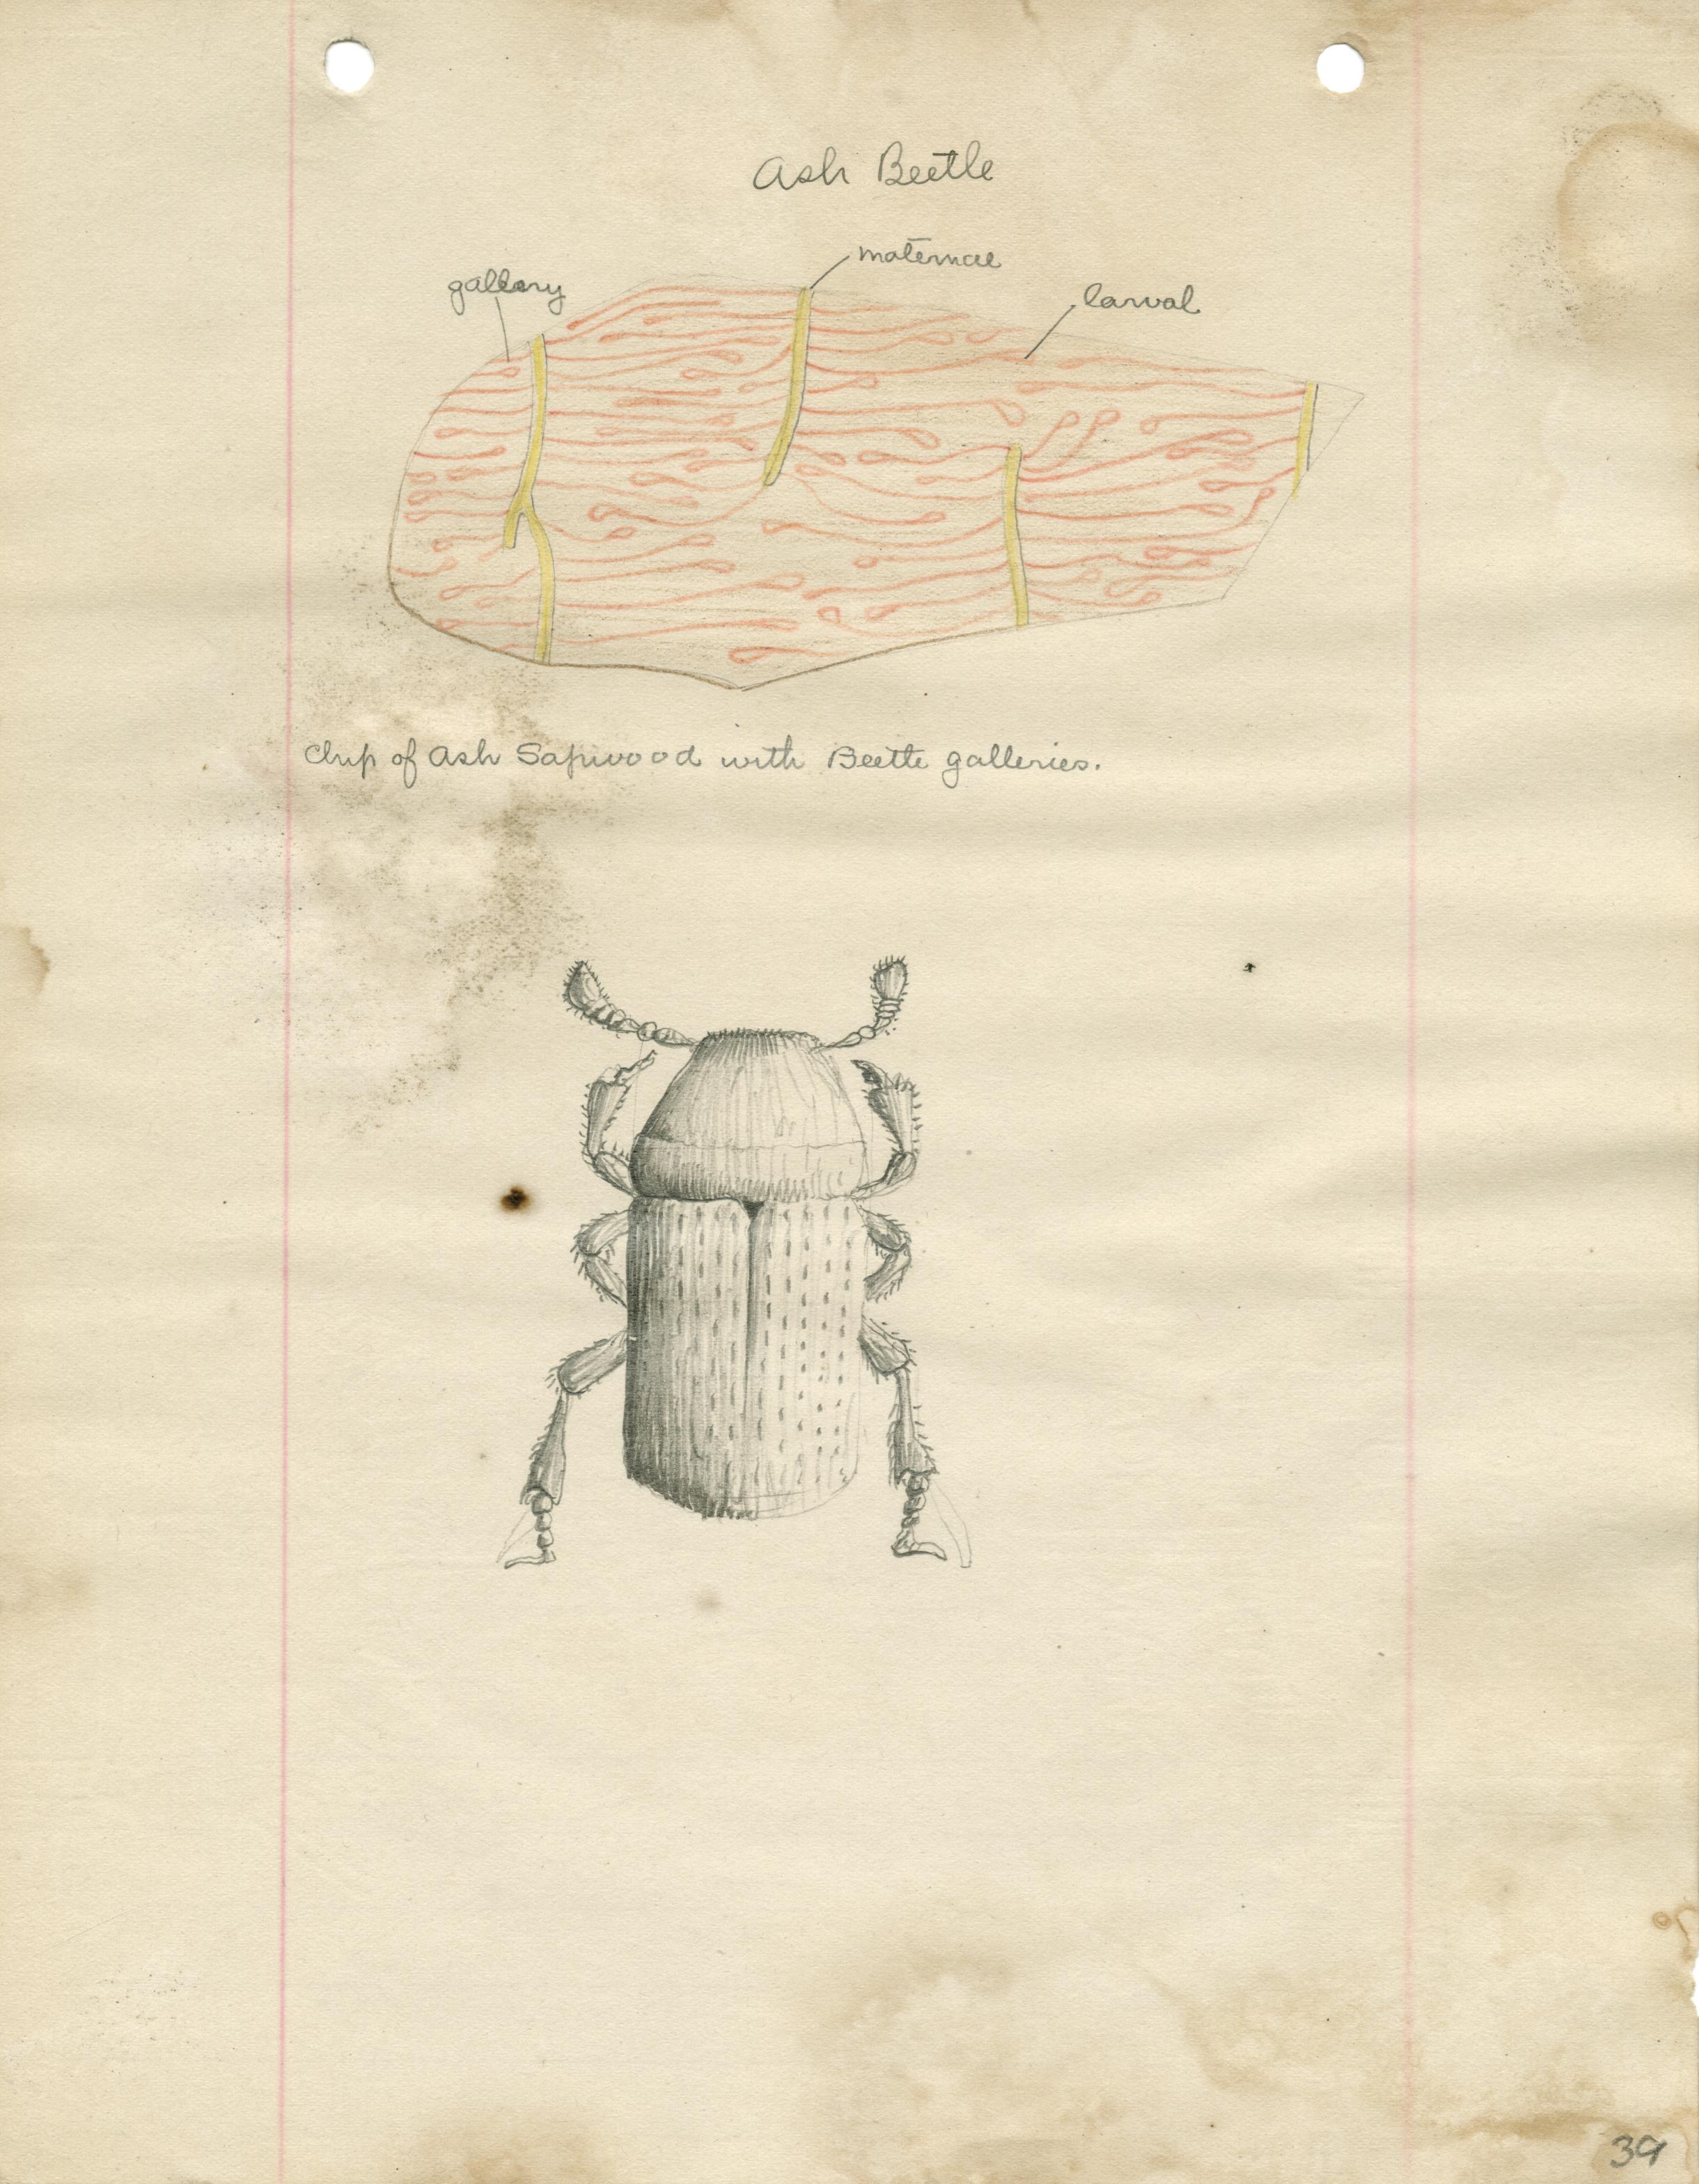 Ash Beetle
maternal
gallery
larval
Chip of Ash Sapwood with Beetle galleries.
39